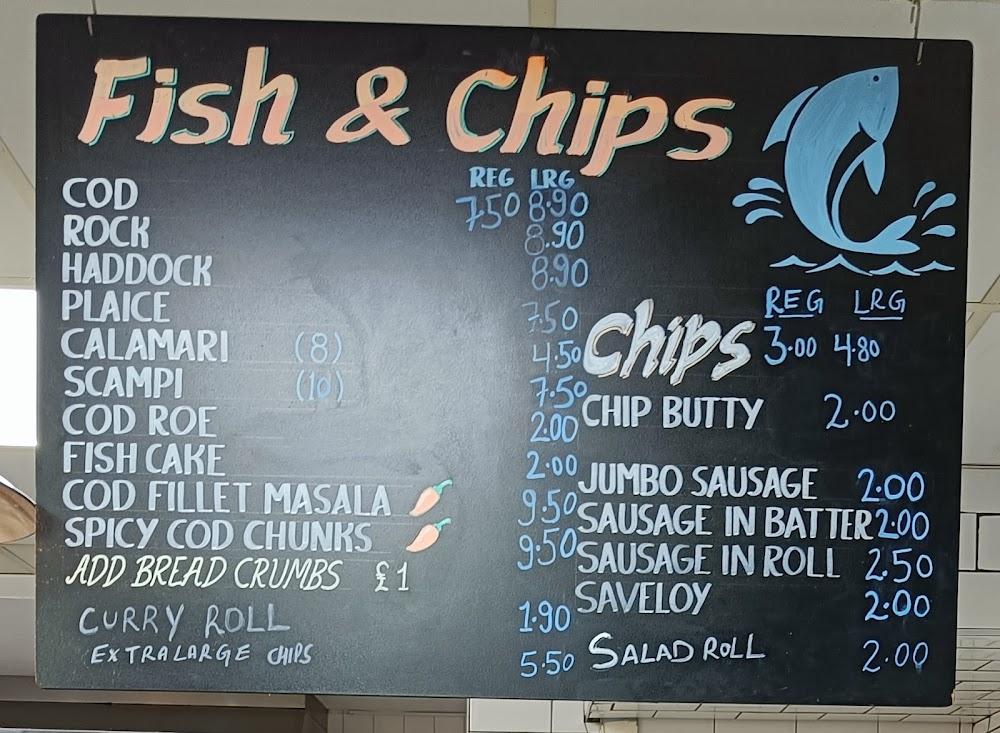 Fish & Chips
REG LRG
COD 7.50 8.90
ROCK 8.90
HADDOCK 8.90
PLAICE 7.50
CALAMARI (8) 4.50
SCAMPI (10) 7.50
COD ROE 2.00
FISH CAKE 2.00
COD FILLET MASALA 9.50
SPICY COD CHUNKS 9.50
ADD BREAD CRUMBS £1
CURRY ROLL 1.90
EXTRALARGE CHIPS 5.50
REG LRG
Chips 3.00 4.80
CHIP BUTTY 2.00
JUMBO SAUSAGE 2.00
SAUSAGE IN BATTER 2.00
SAUSAGE IN ROLL 2.50
SAVELOY 2.00
SALAD ROLL 2.00